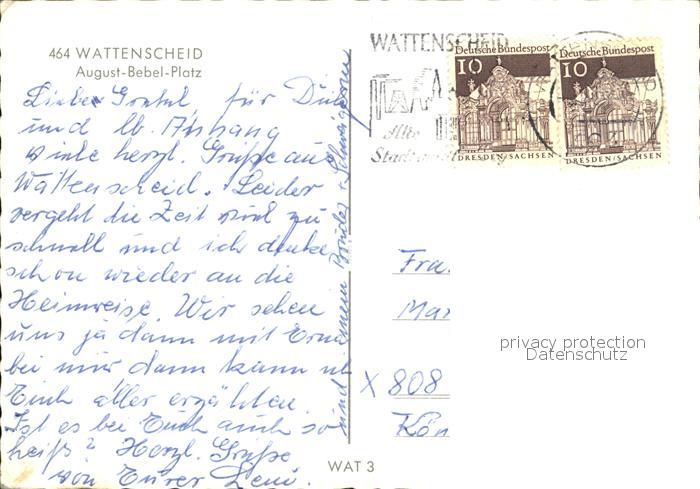 464 WATTENSCHEID
August-Bebel-Platz
Liebe Gretel, für Dich
und lb. Anhang
viele herzl. Grüße aus
Wattenscheid. Leider
vergeht die Zeit viel zu
schnell und ich denke
schon wieder an die
Heimreise. Wir sehen
uns ja dann mit Erna
bei mir dann kann ich
Euch aller erzählen.
Ist es bei Euch auch so
heiß? Herzl. Grüße
von Eurer Leni.
und meinem Bruder u. Schwägerin
WAT 3
WATTENSCHEID
Alte
Stadt
Deutsche Bundespost
10
DRESDEN/SACHSEN
Deutsche Bundespost
10
DRESDEN/SACHSEN
Fra
Mar
privacy protection
Datenschutz
X 808
Kön